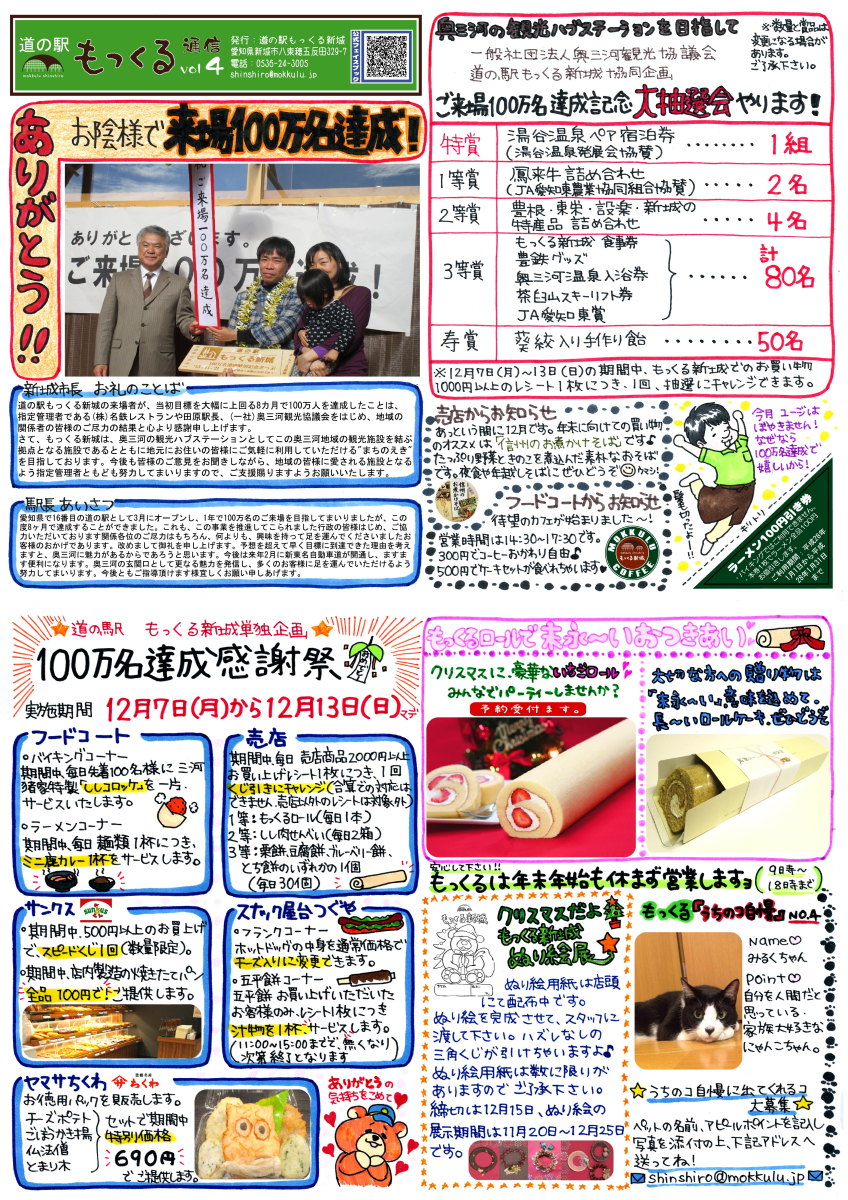 道の駅
もっくる
mokkulu shinshiro
もっくる 通信
vol 4
発行：道の駅もっくる新城
愛知県新城市八束穂五反田329-7
電話：0536-24-3005
shinshiro@mokkulu.jp
公式フェイスブック
ありがとう!!
お陰様で来場100万名達成!
祝ご来場一〇〇万名達成
ありがとうございます。
ご来場100万名達成!
もっくる新城
新城市長 お礼のことば
道の駅もっくる新城の来場者が、当初目標を大幅に上回る8カ月で100万人を達成したことは、
指定管理者である(株)名鉄レストランや田原駅長、(一社)奥三河観光協議会をはじめ、地域の
関係者の皆様のご尽力の結果と心より感謝申し上げます。
さて、もっくる新城は、奥三河の観光ハブステーションとしてこの奥三河地域の観光施設を結ぶ
拠点となる施設であるとともに地元にお住いの皆様にご気軽に利用していただける"まちのえき"
を目指しております。今後も皆様のご意見をお聞きしながら、地域の皆様に愛される施設となる
よう指定管理者ともども努力してまいりますので、ご支援賜りますようお願いいたします。
駅長 あいさつ
愛知県で16番目の道の駅として3月にオープンし、1年で100万名のご来場を目指してまいりましたが、この
度8ヶ月で達成することができました。これも、この事業を推進してこられました行政の皆様はじめ、ご協
力いただいております関係各位のご尽力はもちろん、何よりも、興味を持って足を運んでくださいましたお
客様のおかげであります。改めまして御礼を申し上げます。予想を超えて早く目標に到達できた理由を考え
ますと、奥三河に魅力があるからであろうと思います。今後は来年2月に新東名自動車道が開通し、ますま
す便利になります。奥三河の玄関口として更なる魅力を発信し、多くのお客様に足を運んでいただけるよう
努力してまいります。今後ともご指導頂けます様宜しくお願い申しあげます。
奥三河の観光ハブステーションを目指して
※数量と賞品は
変更になる場合が
あります。
ご了承下さい。
一般社団法人奥三河観光協議会
道の駅もっくる新城協同企画」
ご来場100万名達成記念大抽選会やります!
特賞 湯谷温泉ペア宿泊券 (湯谷温泉発展会協賛) ········ 1組
1等賞 鳳来牛詰め合わせ (JA愛知東農業協同組合協賛) ······· 2名
2等賞 豊根・東栄・設楽・新城の 特産品 詰め合わせ ······ 4名
3等賞
もっくる新城 食事券
豊鉄グッズ
奥三河温泉入浴券
茶臼山スキーリフト券
JA愛知東賞
······ 計 80名
寿賞 葵絞り手作り飴 ······ 50名
※12月7日(月)〜13日(日)の期間中、もっくる新城でのお買い物
1000円以上のレシート1枚につき、1回、抽選にチャレンジできます。
売店からお知らせ
あっという間に12月です。年末に向けての買い物
のオススメは「信州のお煮かけそば」です♪
たっぷり野菜ときのこを煮込んだ素朴なおそば
です。夜食や年越しそばにぜひどうぞ ウマシ!
フードコートからお知らせ
待望のカフェが始まりました〜!
営業時間は14:30〜17:30です。
300円でコーヒーおかわり自由♪
500円でケーキセットが食べれちゃいます♥
MOKKULU
もっくる新城
COFFEE
今月 ユージは
ぼやきません!
なぜなら
100万名達成で
嬉しいから!
髪も切ったよー!!
ラーメン100円引き券
☆道の駅 もっくる新城単独企画」☆
100万名達成感謝祭
おめでとう
実施期間 12月7日(月)から12月13日(日)マデ
フードコート
○バイキングコーナー
期間中、毎日先着100名様に三河
猪家特製「ししコロッケ」を一片
サービスいたします。
○ラーメンコーナー
期間中、毎日 麺類1杯につき、
ミニ鹿カレー1杯をサービスします。
売店
期間中、毎日 売店商品2000円以上
お買い上げレシート1枚につき、1回
くじ引きにチャレンジ(合算での対応は
できません、売店以外のレシートは対象外)
1等：もくるロール(毎日1本)
2等：しし肉せんべい(毎日2箱)
3等：栗餅、豆腐餅、ブルーベリー餅、
とち餅のいずれかの1個
(毎日30個)
サンクス
sunkus
・期間中、500円以上のお買上げ
で、スピードくじ1回(数量限定)。
・期間中、店内製造の焼きたてパン
全品100円で!ご提供します。
スナック屋台つぐや
○フランクコーナー
ホットドッグの中身を通常価格で
チーズ入りに変更できます。
○五平餅コーナー
五平餅 お買い上げいただいた
お客様のみ、レシート1枚につき
汁物を1杯、サービスします。
(11:00〜15:00まで。無くなり)
次第終了となります
ヤマサちくわ
ちくわ
お徳用パックを販売します。
チーズポテト
ごぼうかき揚
仏法僧
とまり木
セットで期間中
特別価格
690円
でご提供します。
ありがとうの
気持ちをこめて♥
もっくるロールで末永〜いおつきあい♥
クリスマスに、豪華ないちごロール
みんなでパーティーしませんか？
予約受付ます。
大切な方への贈り物は
「末永〜い」意味を込めて。
長〜いロールケーキ、ぜひどうぞ
安心して下さい!!
もっくるは年末年始も休まず営業しますョ
(9時〜
18時まで)
もっくる新城
クリスマスだよ
もっくる新城
ぬり絵展
ぬり絵用紙は店頭
にて配布中です。
ぬり絵を完成させて、スタッフに
渡して下さい。ハズレなしの
三角くじが引けちゃいますよ♪
ぬり絵用紙は数に限りが
ありますのでご了承下さい。
締切は12月15日、ぬり絵の
展示期間は11月20日〜12月25日
です。
もっくる『うちのコ自慢』NO.4
Name♡
みるくちゃん
Point♡
自分を人間だと
思っている.
家族大好きな
にゃんこちゃん。
☆うちのコ自慢に出てくれるコ
大募集☆
ペットの名前、アピールポイントを記入し
写真を添付の上、下記アドレスへ
送ってね!
shinshiro@mokkulu.jp